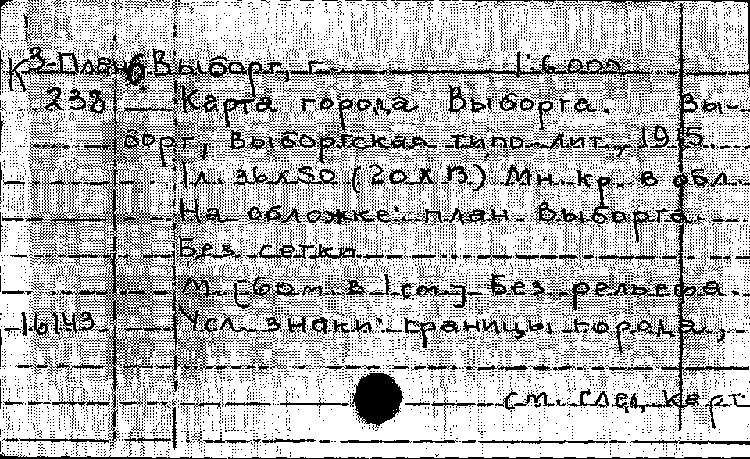 К 3-План 6 Выборг, г. 1:6.000
238 Карта города Выборга. Вы-
борг, Выборгская типо-лит., 1915.
1л. 36х50 (20х13) Мн. кр. в обл.
На обложке: план Выборга.
Без сетки
М. [60м в 1см] Без рельефа.
16143 Усл. знаки: границы города,
см. след. карт